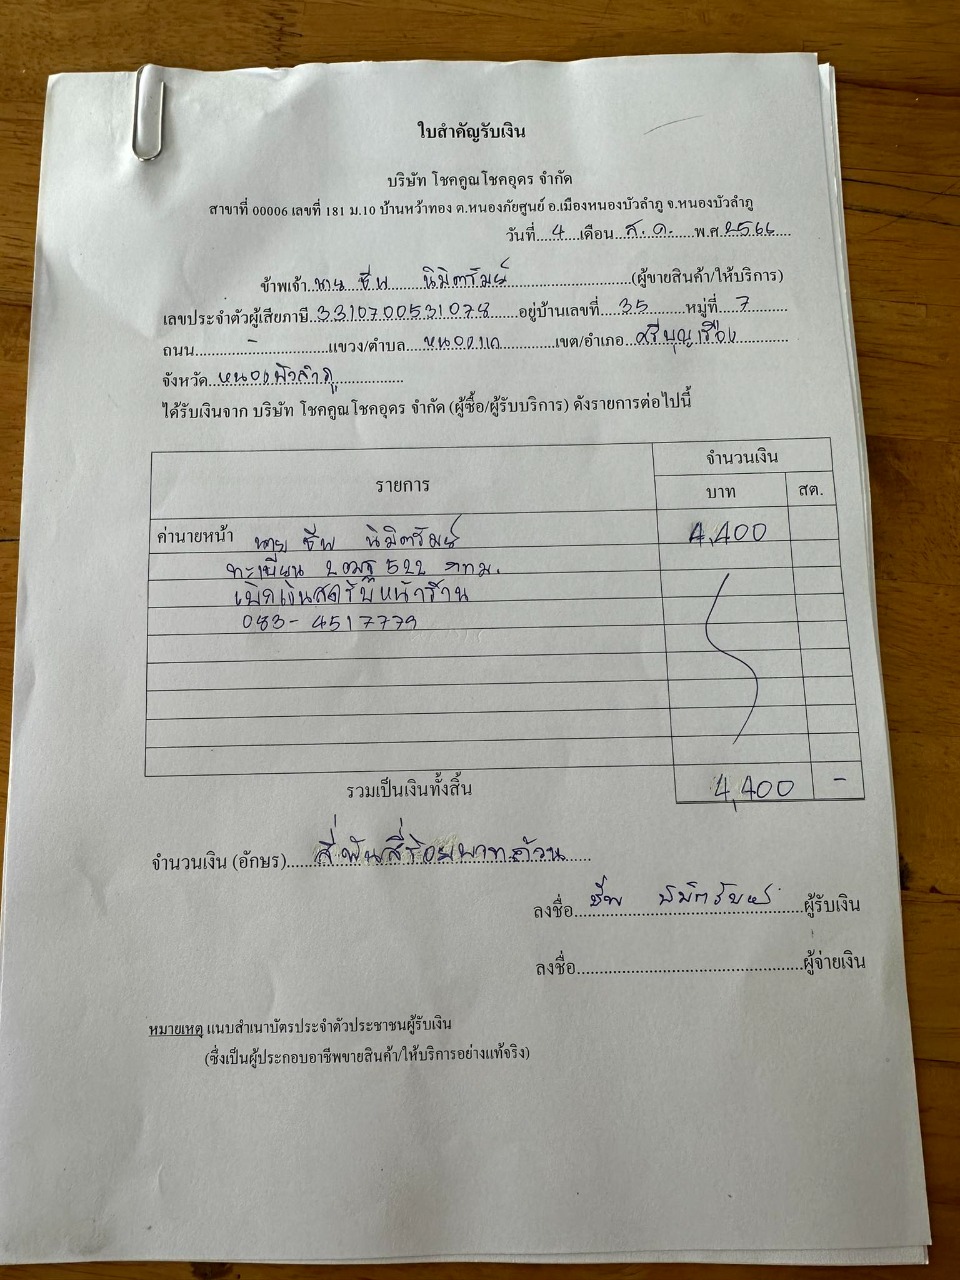 ใบสำคัญรับเงิน
บริษัท โชคคูณโชคอุดร จำกัด
สาขาที่ 00006 เลขที่ 181 ม.10 บ้านหว้าทอง ต.หนองภัยศูนย์ อ.เมืองหนองบัวลำภู จ.หนองบัวลำภู
วันที่....4....เดือน..ส.ค.......พ.ศ.2566....
ข้าพเจ้า..นาย ชีพ นิมิตรัมย์..............................(ผู้ขายสินค้า/ให้บริการ)
เลขประจำตัวผู้เสียภาษี..3310700531078......อยู่บ้านเลขที่....35......หมู่ที่...7........
ถนน..........-..............แขวง/ตำบล...หนองแก............เขต/อำเภอ..ศรีบุญเรือง..........
จังหวัด..หนองบัวลำภู..............
ได้รับเงินจาก บริษัท โชคคูณโชคอุดร จำกัด (ผู้ซื้อ/ผู้รับบริการ) ดังรายการต่อไปนี้
รายการ จำนวนเงิน
บาท สต.
ค่านายหน้า นาย ชีพ นิมิตรัมย์ 4,400
ทะเบียน 2ฒฐ 522 กทม.
เบิกเงินสดรับหน้าร้าน
083-4517779
รวมเป็นเงินทั้งสิ้น 4,400 -
จำนวนเงิน (อักษร)......สี่พันสี่ร้อยบาทถ้วน......
ลงชื่อ...ชีพ นิมิตรัมย์......ผู้รับเงิน
ลงชื่อ..............................................ผู้จ่ายเงิน
หมายเหตุ แนบสำเนาบัตรประจำตัวประชาชนผู้รับเงิน
(ซึ่งเป็นผู้ประกอบอาชีพขายสินค้า/ให้บริการอย่างแท้จริง)